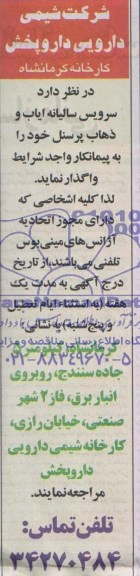 شرکت شیمی
دارویی داروپخش
کارخانه کرمانشاه
در نظر دارد
سرویس سالیانه ایاب و
ذهاب پرسنل خود را
به پیمانکار واجد شرایط
واگذار نماید.
لذا کلیه اشخاصی که
دارای مجوز اتحادیه
آژانس‌های مینی بوس
تلفنی می‌باشند، از تاریخ
درج آگهی به مدت یک
هفته (به استثناء ایام تعطیل
و پنج شنبه) به نشانی
کرمانشاه، کیلومتر ۴
جاده سنندج، روبروی
انبار برق، فاز ۲ شهر
صنعتی، خیابان رازی،
کارخانه شیمی دارویی
داروپخش
مراجعه نمایند.
تلفن تماس:
۳۴۲۷۰۴۸۴
۰۲۱-۸۸۳۴۹۶۷۰-۵